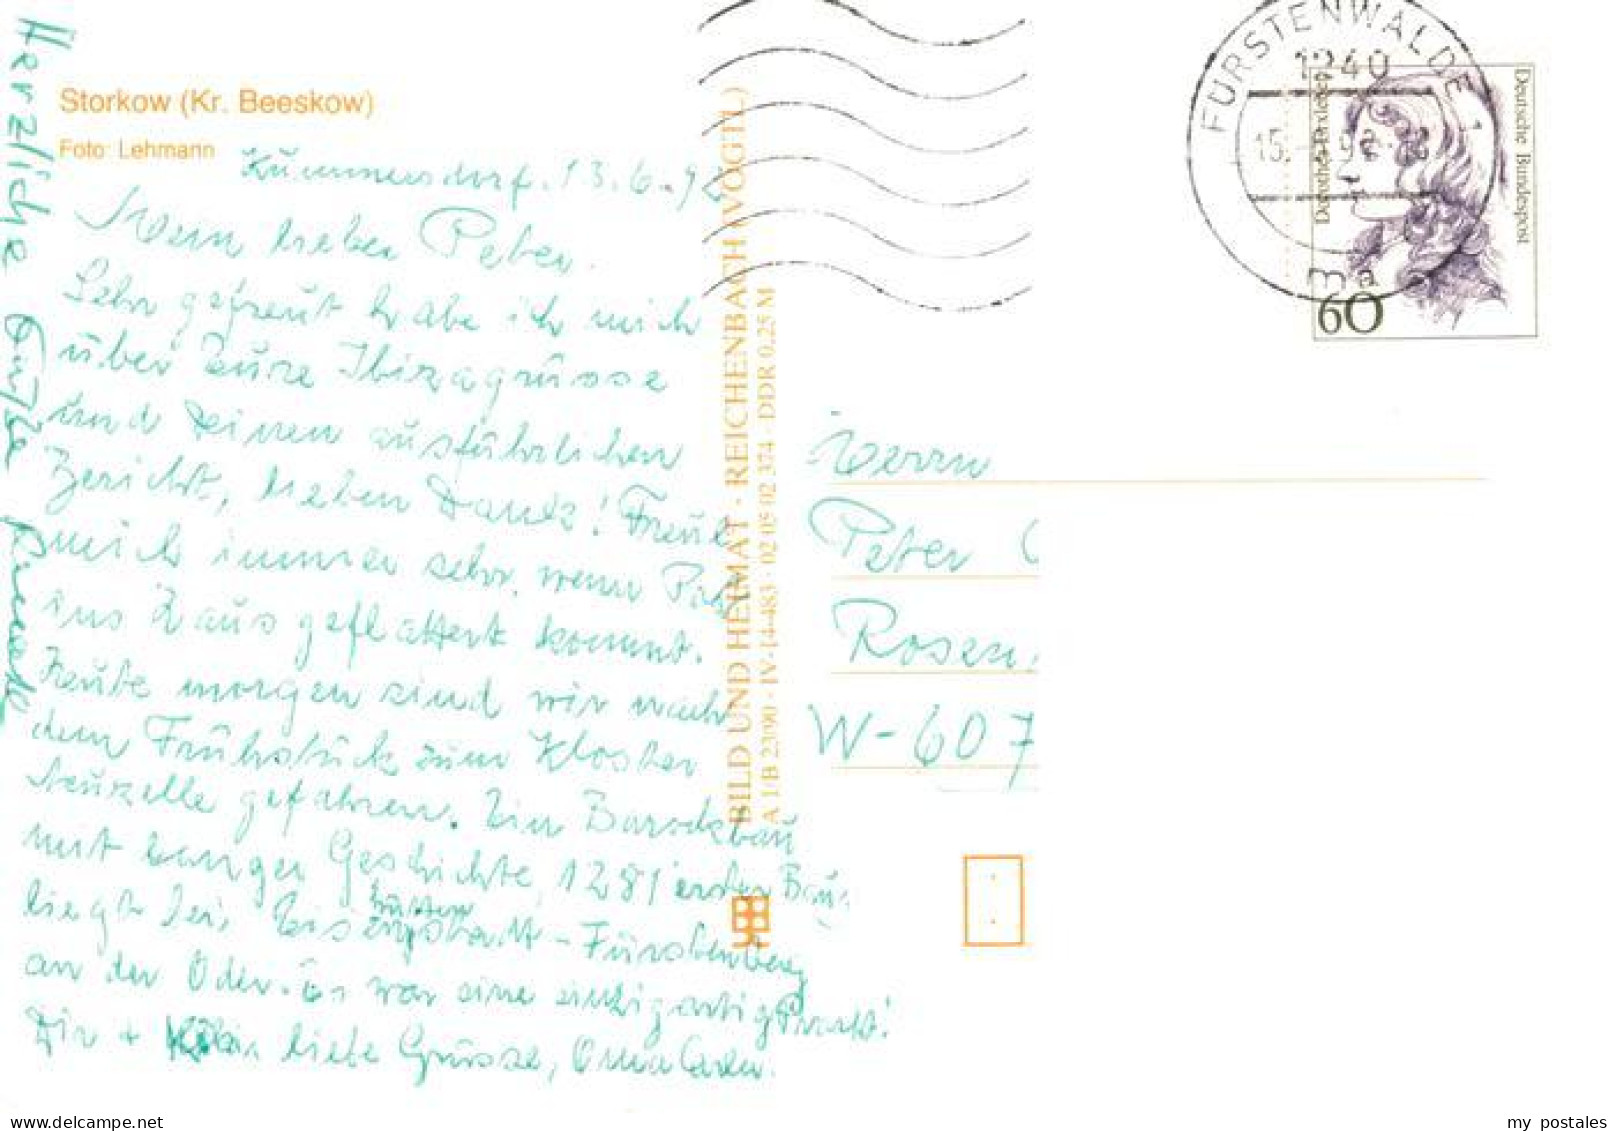 Storkow (Kr. Beeskow)
Foto: Lehmann
Kummersdorf. 13.6.92
Mein lieber Peter.
Sehr gefreut habe ich mich
über Eure Ibizagrüsse
und Deinen ausführlichen
Bericht, lieben Dank! Freue
mich immer sehr, wenn Post
ins Haus geflattert kommt.
Heute morgen sind wir nach
dem Frühstück zum Kloster
Neuzelle gefahren. Ein Barockbau
mit langer Geschichte, 1281 erster Bau,
liegt bei Eisenhüttenstadt-Fürstenberg
an der Oder. Es war eine einzigartig Pracht!
Dir + liebe Grüsse, Oma
Herzliche Grüße
BILD UND HEIMAT · REICHENBACH (VOGTL)
A 1/B 2390 · IV-14-483 · 02 05 02 374 · DDR 0,25 M
FÜRSTENWALDE 1
1240
15.
ma
Deutsche Bundespost
Dorothea Erxleben
60
Herrn
Peter
Rosen
W-607
my postales
www.delcampe.net